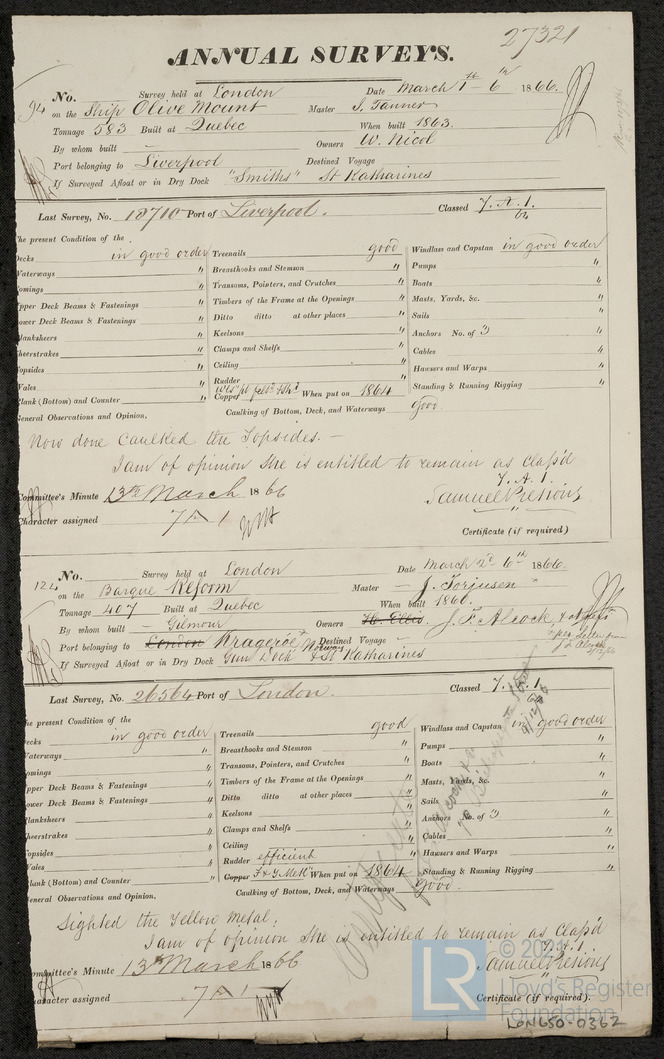 27321
ANNUAL SURVEYS.
94 No. Survey held at London Date March 1st - 6th 1866.
on the Ship Olive Mount Master J. Tanner
Tonnage 583 Built at Quebec When built 1863.
By whom built — Owners W. Nicol
Port belonging to Liverpool Destined Voyage
If Surveyed Afloat or in Dry Dock "Smiths" St Katharines
Last Survey, No. 18710 Port of Liverpool. Classed 7. A. 1. 64
he present Condition of the
ecks in good order Treenails good Windlass and Capstan in good order
Vaterways " Breasthooks and Stemson " Pumps "
omings " Transoms, Pointers, and Crutches " Boats "
pper Deck Beams & Fastenings " Timbers of the Frame at the Openings " Masts, Yards, &c. "
ower Deck Beams & Fastenings " Ditto ditto at other places " Sails "
lanksheers " Keelsons " Anchors No. of 3 "
heerstrakes " Clamps and Shelfs " Cables "
opsides " Ceiling " Hawsers and Warps "
Vales " Rudder " Standing & Running Rigging "
lank (Bottom) and Counter " Copper When put on 1864
eneral Observations and Opinion. Caulking of Bottom, Deck, and Waterways good.
Now done Caulked the Topsides. —
I am of opinion She is entitled to remain as Clap'd
7. A. 1.
Committee's Minute 13th March 1866 Samuel Presious
Character assigned 7 A 1
Certificate (if required)
124 No. Survey held at London Date March 2d 6th 1866.
on the Barque Reform Master — J. Torjusen
Tonnage 407 Built at Quebec When built 1860.
By whom built — Gilmour Owners H. Ellis. J. F. Alcock,
Port belonging to London Krageroe Norway Destined Voyage —
If Surveyed Afloat or in Dry Dock Gun Dock & St Katharines
Last Survey, No. 26364 Port of London. Classed 7. A. 1. 64
he present Condition of the
ecks in good order Treenails good Windlass and Capstan in good order
Vaterways " Breasthooks and Stemson " Pumps "
omings " Transoms, Pointers, and Crutches " Boats "
pper Deck Beams & Fastenings " Timbers of the Frame at the Openings " Masts, Yards, &c. "
ower Deck Beams & Fastenings " Ditto ditto at other places " Sails "
lanksheers " Keelsons " Anchors No. of 3 "
heerstrakes " Clamps and Shelfs " Cables "
opsides " Ceiling " Hawsers and Warps "
Vales " Rudder efficient Standing & Running Rigging "
lank (Bottom) and Counter " Copper F & Y Metl When put on 1864
eneral Observations and Opinion. Caulking of Bottom, Deck, and Waterways good.
Sighted the Yellow Metal.
I am of opinion She is entitled to remain as Clap'd
7. A. 1
ommittee's Minute 13th March 1866 Samuel Presious
haracter assigned 7 A 1
Certificate (if required).
LR © 2021 Lloyd's Register Foundation
LON650-0362